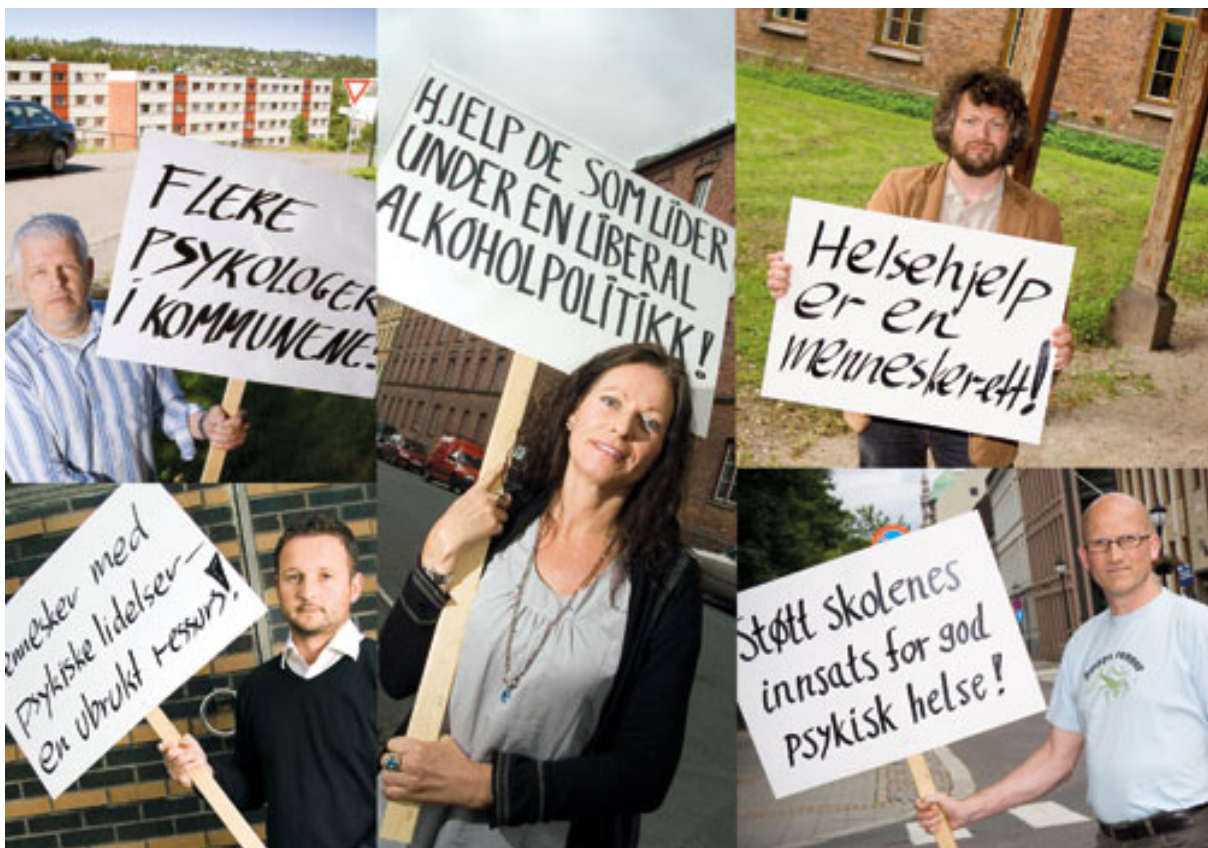 FLERE
PSYKOLOGER
I KOMMUNENE!
HJELP DE SOM LIDER
UNDER EN LIBERAL
ALKOHOLPOLITIKK!
Helsehjelp
er en
menneskerett!
ennesker med
psykiske lidelser—
en ubrukt ressurs!
Støtt skolenes
innsats for god
psykisk helse!